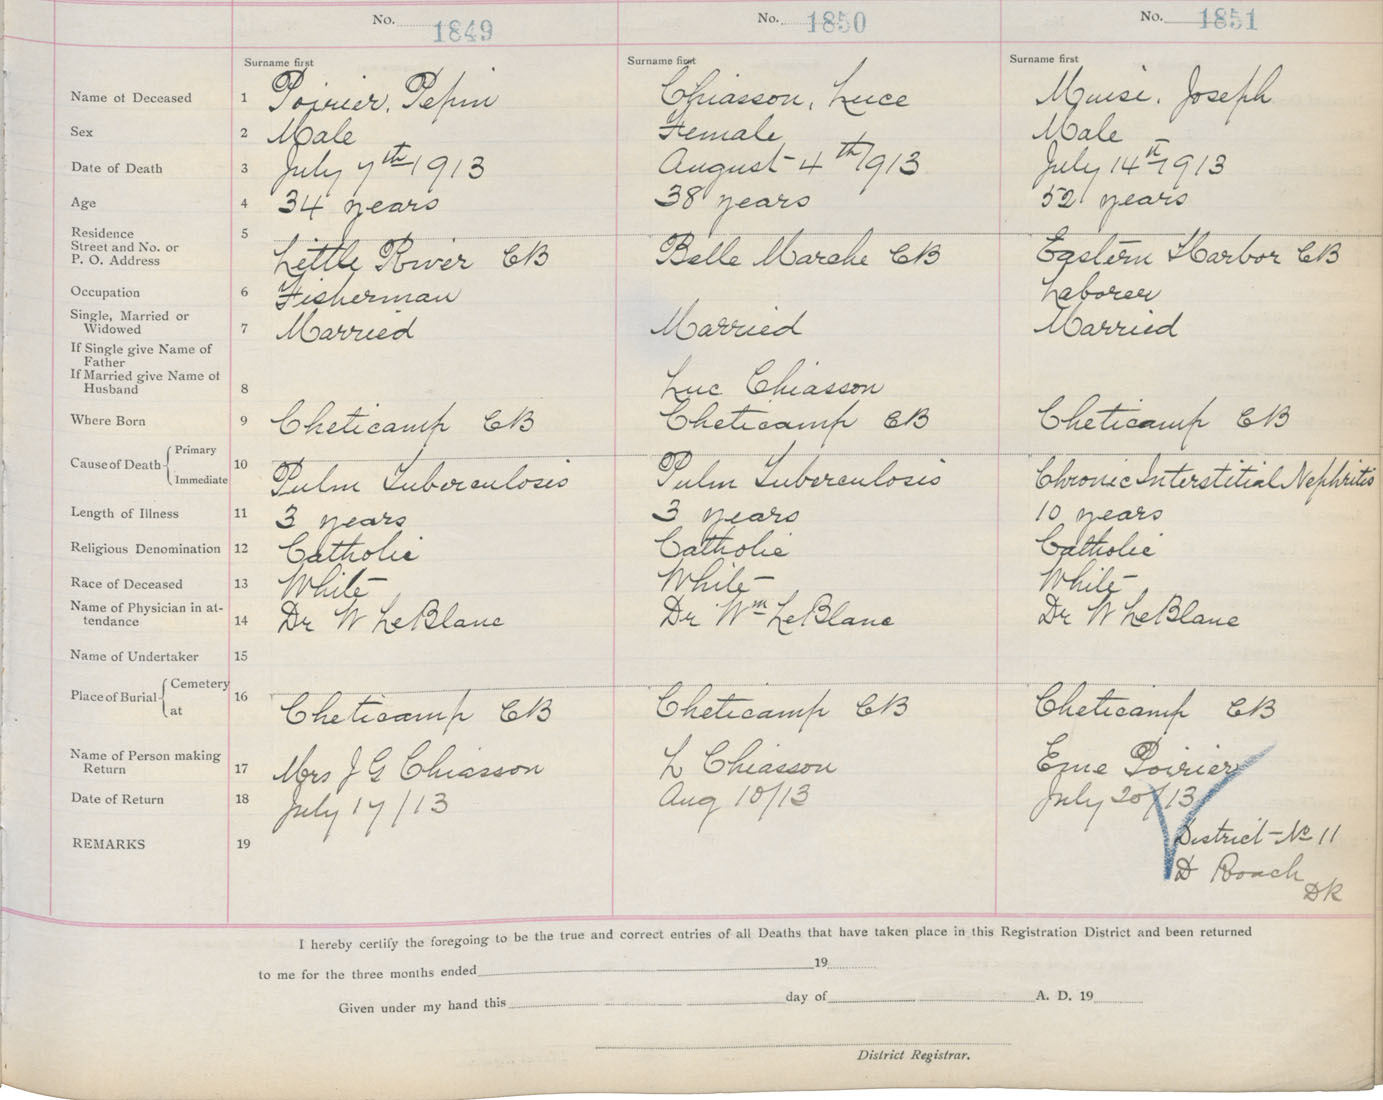 No. 1849 No. 1850 No. 1851
Surname first Surname first Surname first
Name of Deceased 1 Poirier, Pepin Chiasson, Luce Muise, Joseph
Sex 2 Male Female Male
Date of Death 3 July 7th 1913 August 4th 1913 July 14th 1913
Age 4 34 years 38 years 52 years
Residence 5
Street and No. or
P. O. Address Little River CB Belle Marche CB Eastern Harbor CB
Occupation 6 Fisherman Laborer
Single, Married or
Widowed 7 Married Married Married
If Single give Name of
Father
If Married give Name of
Husband 8 Luc Chiasson
Where Born 9 Cheticamp CB Cheticamp CB Cheticamp CB
Primary
Cause of Death 10
Immediate Pulm Tuberculosis Pulm Tuberculosis Chronic Interstitial Nephritis
Length of Illness 11 3 years 3 years 10 years
Religious Denomination 12 Catholic Catholic Catholic
Race of Deceased 13 White White White
Name of Physician in at-
tendance 14 Dr W LeBlanc Dr Wm LeBlanc Dr W LeBlanc
Name of Undertaker 15
Cemetery
Place of Burial 16
at Cheticamp CB Cheticamp CB Cheticamp CB
Name of Person making
Return 17 Mrs J G Chiasson L Chiasson Eme Poirier
Date of Return 18 July 17/13 Aug 10/13 July 20/13
REMARKS 19 District No 11
D Roach
DR
I hereby certify the foregoing to be the true and correct entries of all Deaths that have taken place in this Registration District and been returned
to me for the three months ended 19
Given under my hand this day of A. D. 19
District Registrar.